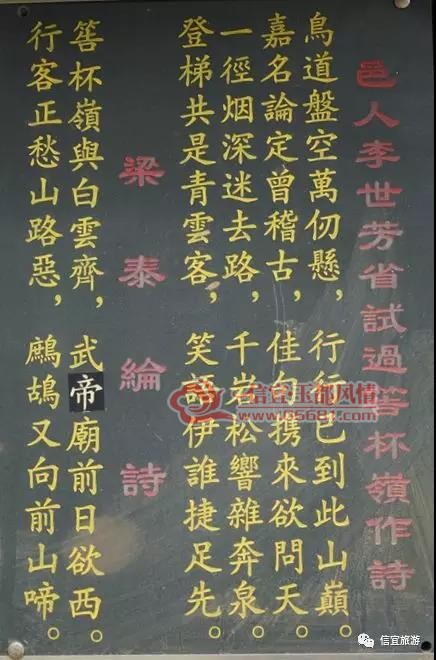 邑人李世芳省試過筶杯嶺作詩
鳥道盤空萬仞懸，行行已到此山巔。
嘉名論定曾稽古，佳句携來欲問天。
一徑烟深迷去路，千岩松響雜奔泉。
登梯共是青雲客，笑語伊誰捷足先。
梁泰綸詩
筶杯嶺與白雲齊，武帝廟前日欲西。
行客正愁山路惡，鷓鴣又向前山啼。
信宜玉都风情
信宜旅游